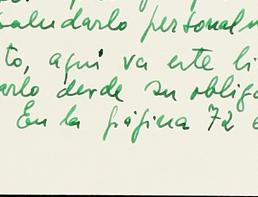 saludarlo personalm
to, aquí va este li
arlo desde su obliga
En la página 72 e